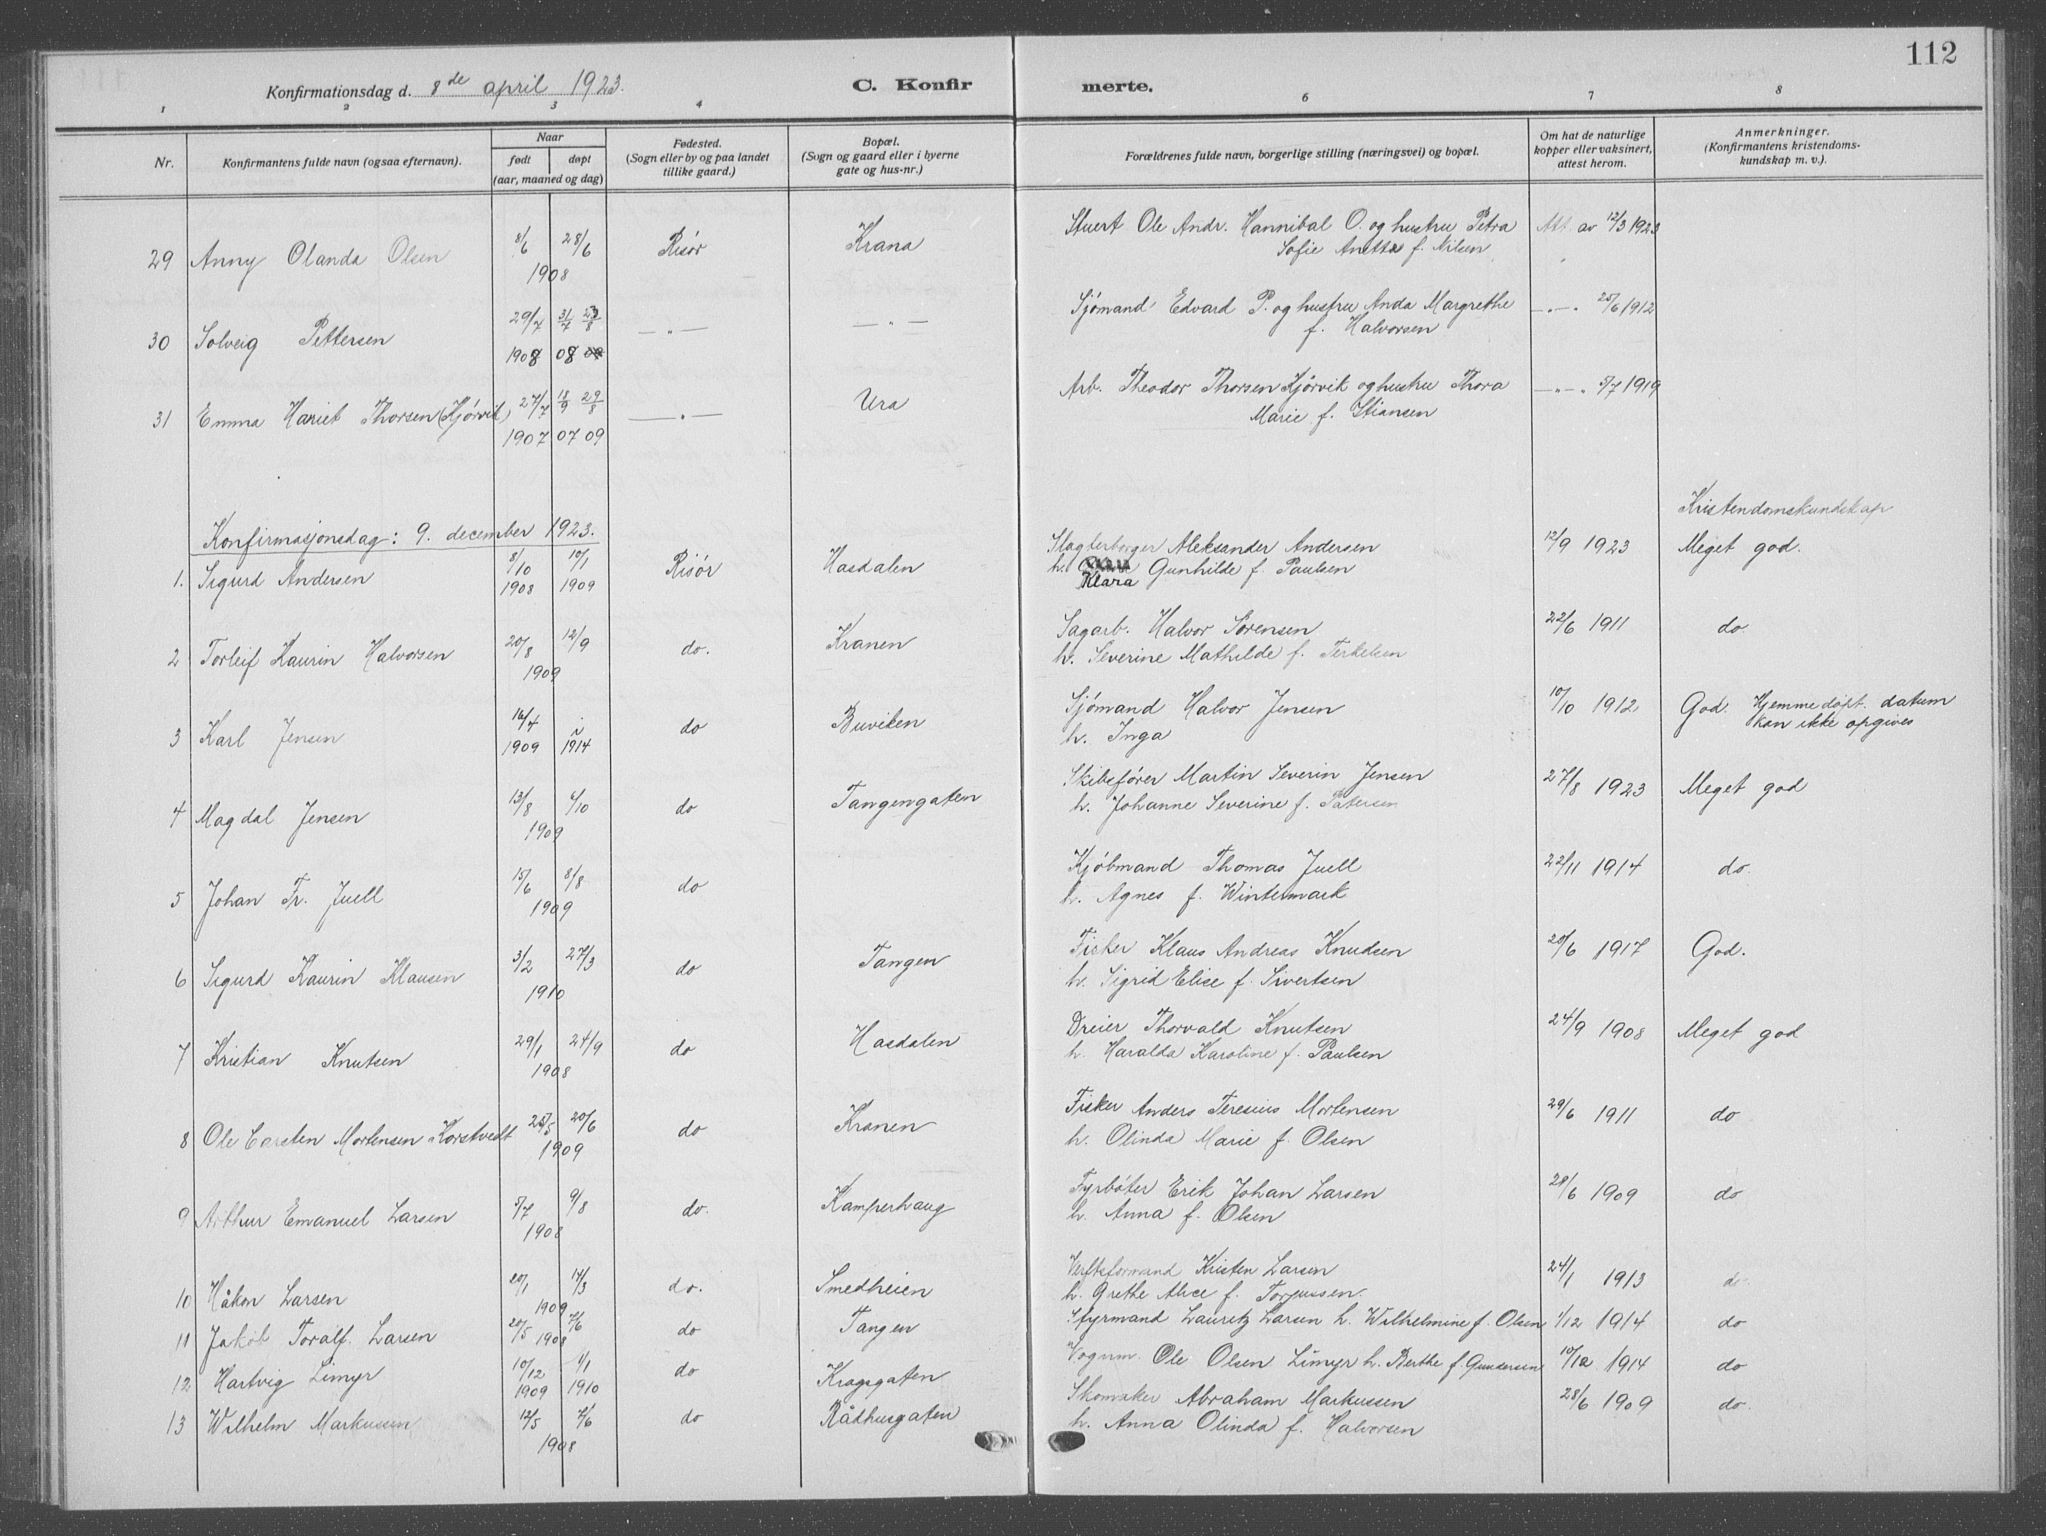 112
Konfirmationsdag d. 8de april 1923. C. Konfir merte.
1 2 3 4 6 7 8
Nr. Konfirmantens fulde navn (ogsaa efternavn). Naar født døpt (aar, maaned og dag) Fødested. (Sogn eller by og paa landet tillike gaard.) Bopæl. (Sogn og gaard eller i byerne gate og hus-nr.) Forældrenes fulde navn, borgerlige stilling (næringsvei) og bopæl. Om hat de naturlige kopper eller vaksinert, attest herom. Anmerkninger. (Konfirmantens kristendoms-kundskap m. v.).
29 Anny Olanda Olsen 8/6 28/6 1908 Risør Krana Stuert Ole Andr. Hannibal O. og hustru Petra Att. av 12/3 1923
Sofie Anetta f. Nilsen
30 Solveig Pettersen 29/7 1908 31/7 08 Sjømand Edvard P. og hustru Anda Margrethe — " — 25/6 1912
f. Halvorsen
31 Emma Hariet Thorsen (Kjørvik) 27/7 1907 18/9 07 29/8 09 — " — Ura Arb. Theodor Thorsen Kjørvik og hustru Thora — " — 5/7 1919
Marie f. Stiansen
Kristendomskundskap
Konfirmasjonsdag: 9. december 1923.
1. Sigurd Andersen 8/10 1908 10/1 1909 Risør Hasdalen Slagterborger Aleksander Andersen 12/9 1923 Meget god.
h. Klara Gunhilde f. Paulsen
2 Torleif Kaurin Halvorsen 20/8 12/9 1909 do. Kranen Sagarb. Halvor Sørensen 22/6 1911 do.
h. Severine Mathilde f. Terkelsen
3 Karl Jensen 16/4 1909 i 1914 do Buviken Sjømand Halvor Jensen 10/10 1912 God. Hjemmedøpt. datum
h. Inga kan ikke opgives
4 Magdal Jensen 13/8 6/10 1909 do Tangengaten Skibsfører Martin Severin Jensen 27/8 1923 Meget god
h. Johanne Severine f. Petersen
5 Johan Fr. Juell 15/6 8/8 1909 do Kjøbmand Thomas Juell 22/11 1914 do.
h. Agnes f. Wintermark
6 Sigurd Kaurin Klausen 3/2 27/3 1910 do Tangen Fisker Klaus Andreas Knudsen 20/6 1917 God.
h. Sigrid Elise f. Sivertsen
7 Kristian Knutsen 29/1 24/9 1908 do Hasdalen Dreier Thorvald Knutsen 24/9 1908 Meget god
h. Haralda Karoline f. Paulsen
8 Ole Carsten Mortensen Korstvedt 25/5 20/6 1909 do Kranen Fisker Anders Teresius Mortensen 29/6 1911 do
h. Olinda Marie f. Olsen
9 Arthur Emanuel Larsen 5/7 9/8 1908 do. Kamperhaug Fyrbøter Erik Johan Larsen 28/6 1909 do
h. Anna f. Olsen
10 Håkon Larsen 20/1 14/3 1909 do. Smedheien Verftsformand Kristen Larsen 24/1 1913 do
h. Grethe Alice f. Torjussen.
11 Jakob Toralf. Larsen 20/5 7/6 1908 do Tangen Styrmand Lauretz Larsen h. Wilhelmine f. Olsen 1/12 1914 do
12 Hartvig Limyr 10/12 1909 1/1 1910 do Kragsgaten Vognm. Ole Olsen Limyr h. Berthe f. Gundersen 10/12 1914 do
13 Wilhelm Markussen 12/5 7/6 1908 do Rådhusgaten Skomaker Abraham Markussen 28/6 1909 do.
h. Anna Olinda f. Halvorsen